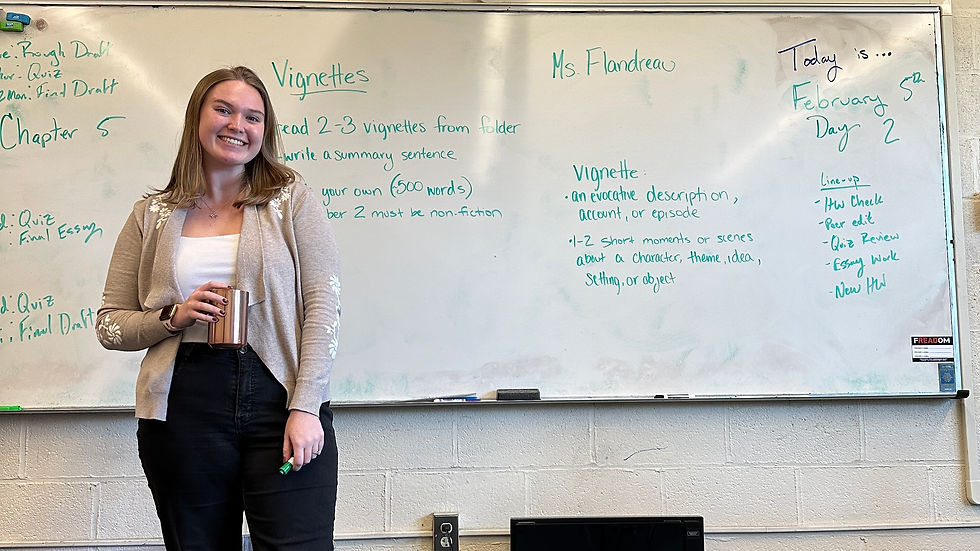 Rough Draft
Quiz
Final Draft
Chapter 5
Quiz
Final Essay
Quiz
Final Draft
Vignettes
read 2-3 vignettes from folder
-write a summary sentence
your own (~500 words)
2 must be non-fiction
Ms. Flandreau
Vignette:
• an evocative description,
account, or episode
• 1-2 short moments or scenes
about a character, theme, idea,
setting, or object
Today is...
February 5th
Day 2
Line-up
- HW Check
- Peer edit
- Quiz Review
- Essay Work
- New HW
FREADOM